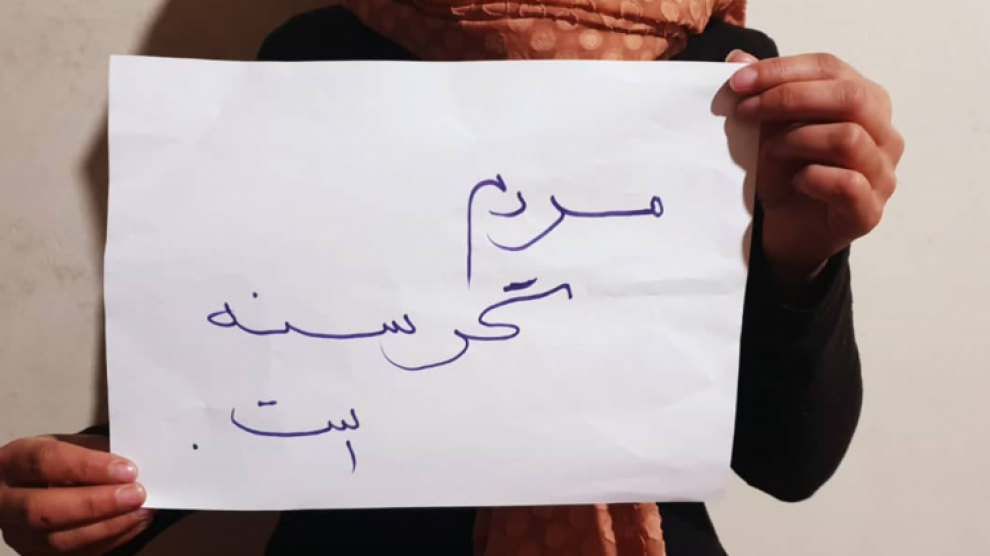 مردم
گرسنه
است.